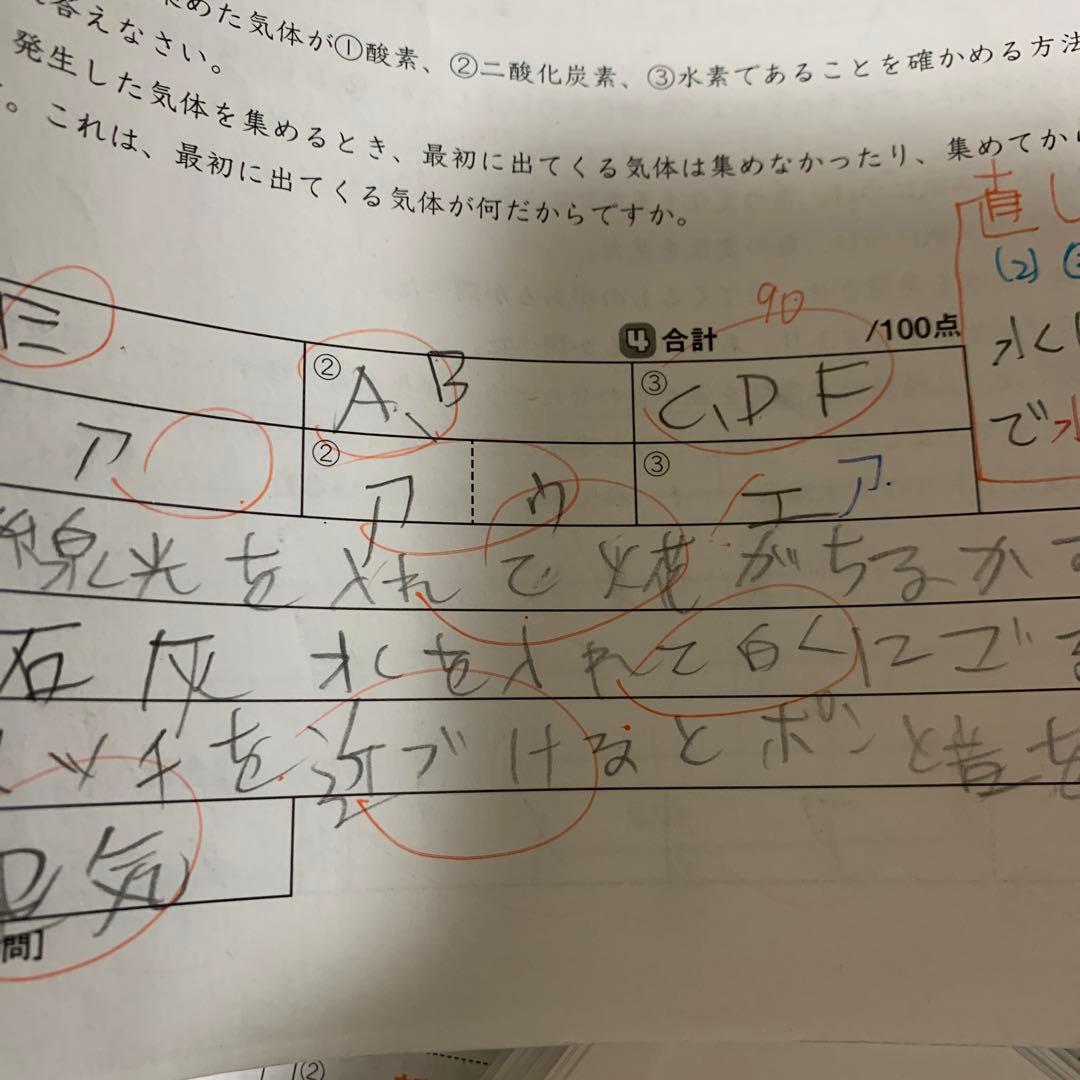 めた気体が①酸素、②二酸化炭素、③水素であることを確かめる方法
答えなさい。
発生した気体を集めるとき、最初に出てくる気体は集めなかったり、集めてから
。これは、最初に出てくる気体が何だからですか。
直し
(2)
水
で水
90
4 合計 /100点
② A、B
③ C、D F
ア
② ア ウ
③ エ ア.
線光を入れて 燃がちるか
石灰水を入れて白くにごる
ッチを近づけるとポンと音を
気
問]
(2)